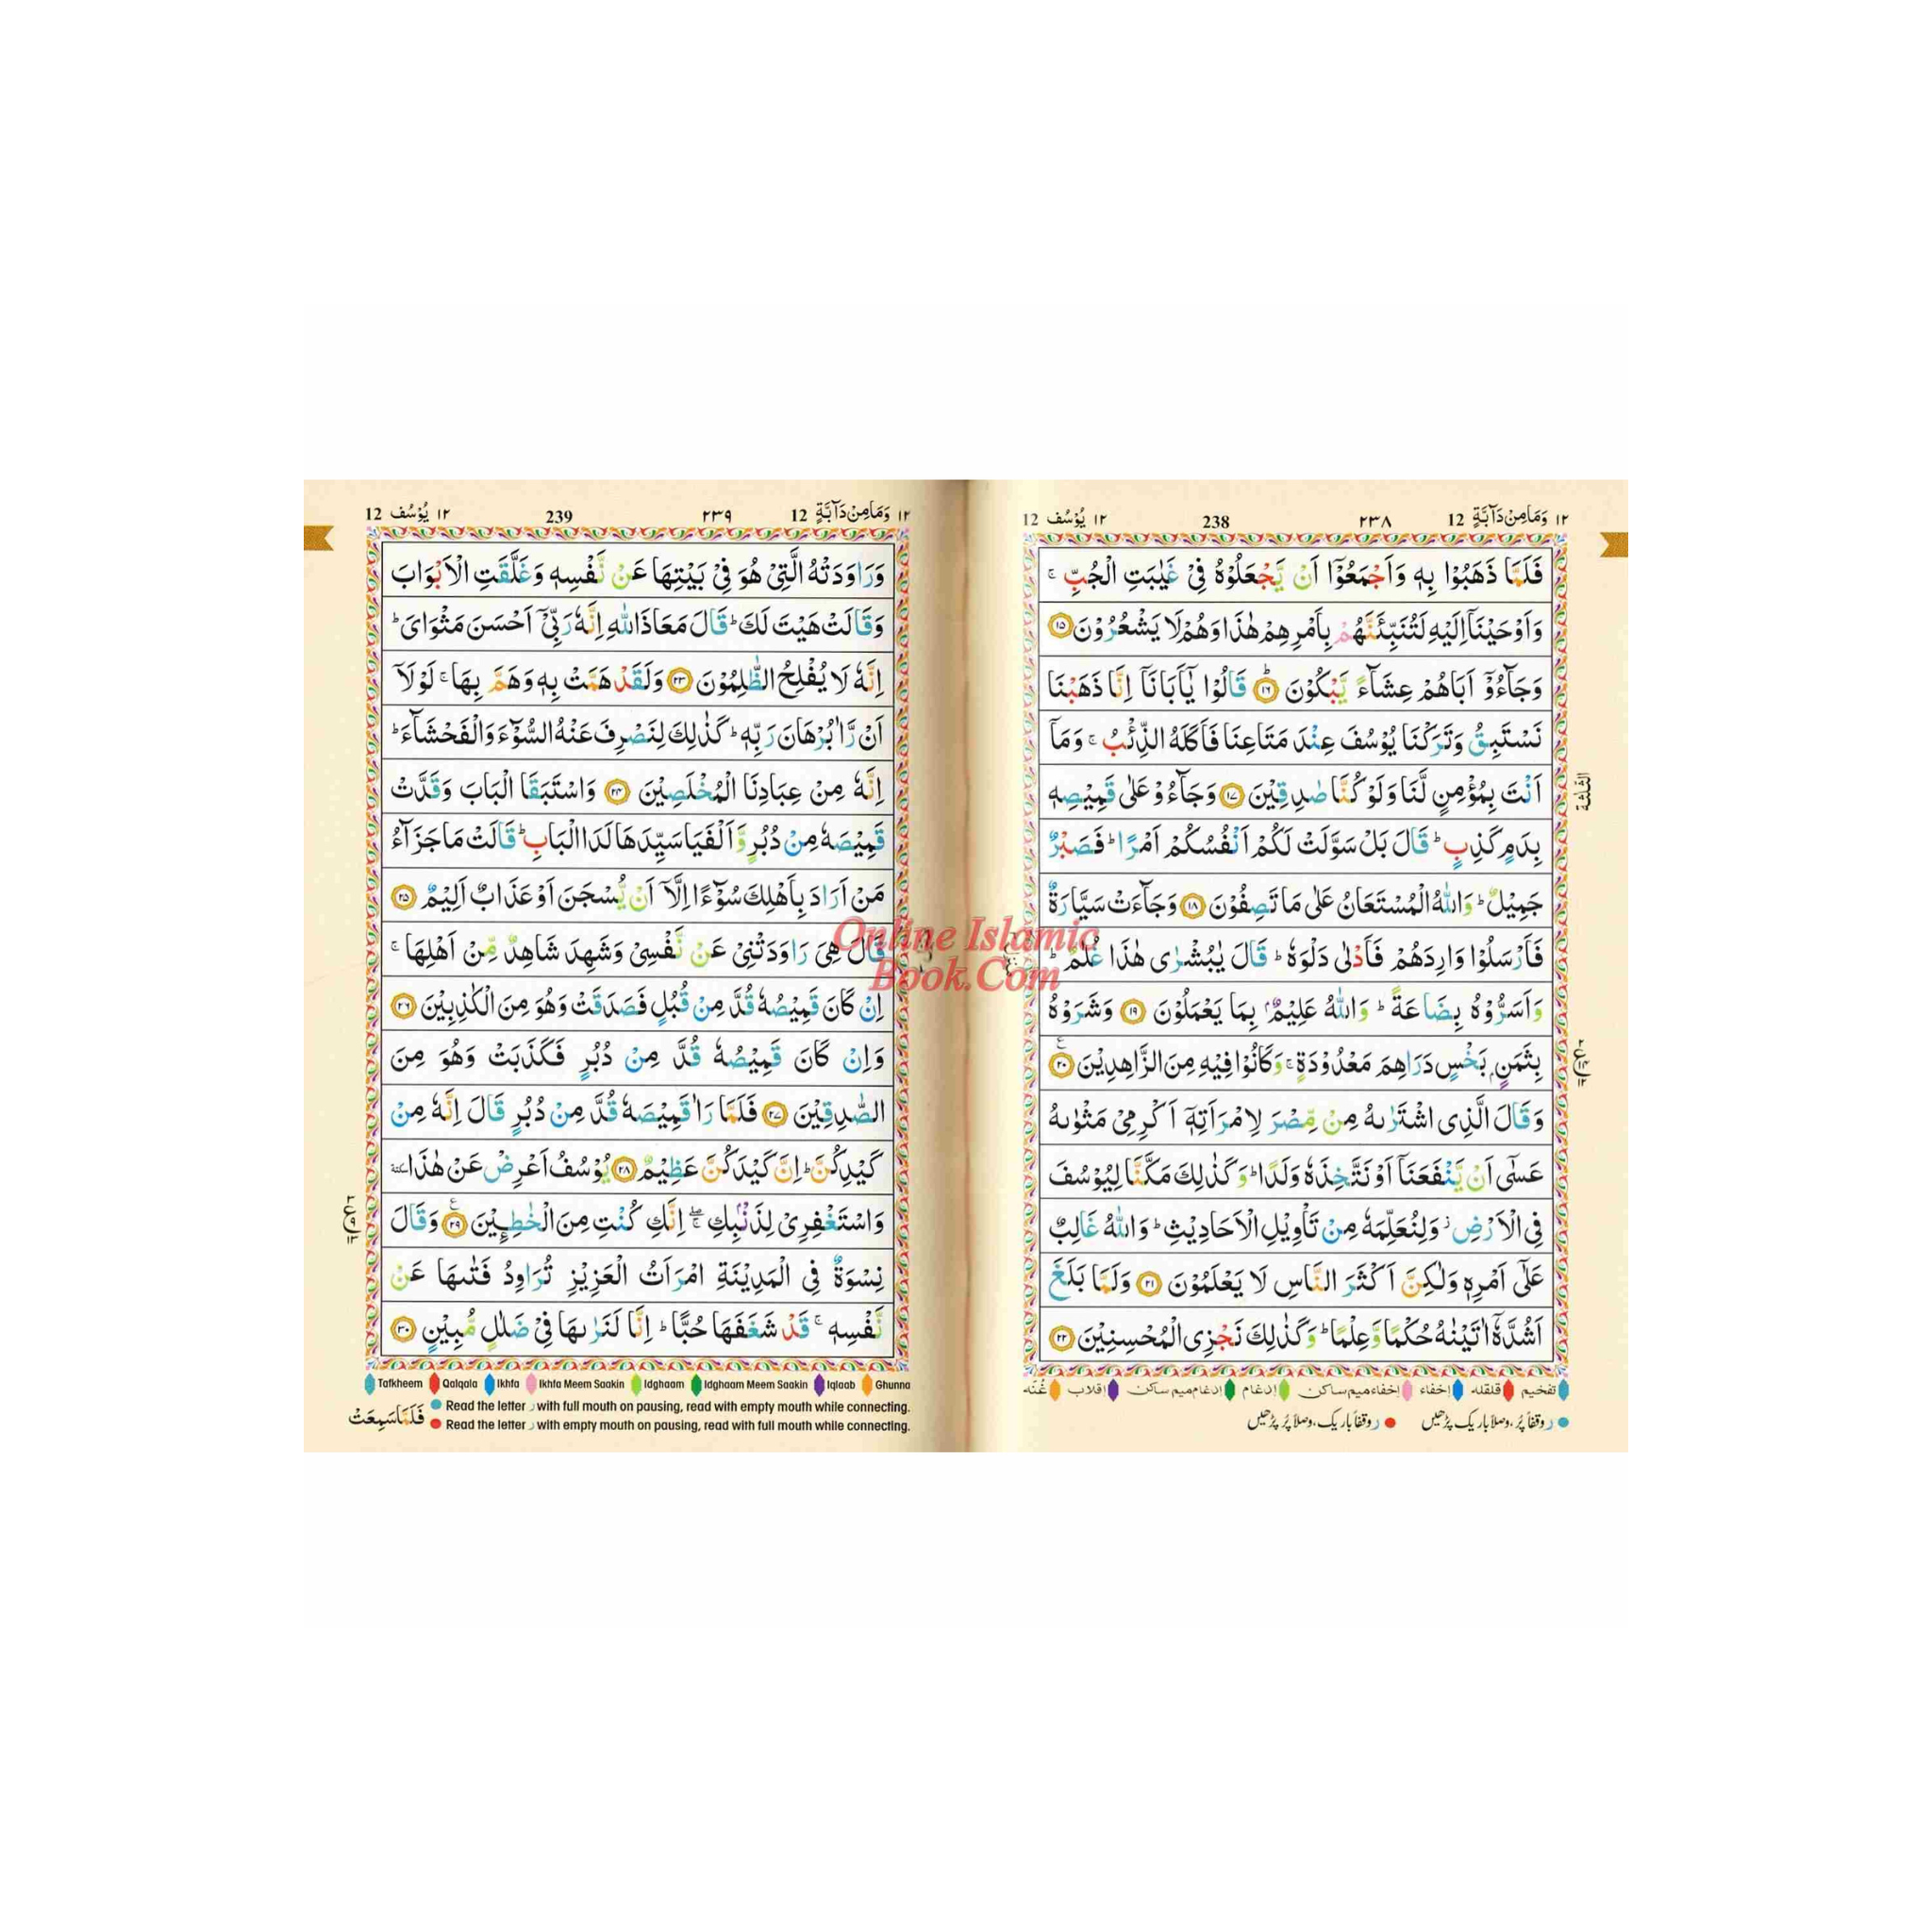 ١٢ وَمَا مِنْ دَآبَّةٍ 12 ٢٣٨ 238 ١٢ يُوْسُف 12
فَلَمَّا ذَهَبُوْا بِهٖ وَاَجْمَعُوْٓا اَنْ يَّجْعَلُوْهُ فِيْ غَيٰبَتِ الْجُبِّ ۚ
وَاَوْحَيْنَآ اِلَيْهِ لَتُنَبِّئَنَّهُمْ بِاَمْرِهِمْ هٰذَا وَهُمْ لَا يَشْعُرُوْنَ ١٥
وَجَآءُوْٓ اَبَاهُمْ عِشَآءً يَّبْكُوْنَ ؕ ١٦ قَالُوْا يٰٓاَبَانَآ اِنَّا ذَهَبْنَا
نَسْتَبِقُ وَتَرَكْنَا يُوْسُفَ عِنْدَ مَتَاعِنَا فَاَكَلَهُ الذِّئْبُ ۚ وَمَآ
اَنْتَ بِمُؤْمِنٍ لَّنَا وَلَوْ كُنَّا صٰدِقِيْنَ ١٧ وَجَآءُوْ عَلٰى قَمِيْصِهٖ
بِدَمٍ كَذِبٍ ؕ قَالَ بَلْ سَوَّلَتْ لَكُمْ اَنْفُسُكُمْ اَمْرًا ؕ فَصَبْرٌ
جَمِيْلٌ ؕ وَاللّٰهُ الْمُسْتَعَانُ عَلٰى مَا تَصِفُوْنَ ١٨ وَجَآءَتْ سَيَّارَةٌ
فَاَرْسَلُوْا وَارِدَهُمْ فَاَدْلٰى دَلْوَهٗ ؕ قَالَ يٰبُشْرٰى هٰذَا غُلٰمٌ ؕ
وَاَسَرُّوْهُ بِضَاعَةً ؕ وَاللّٰهُ عَلِيْمٌۢ بِمَا يَعْمَلُوْنَ ١٩ وَشَرَوْهُ
بِثَمَنٍۢ بَخْسٍ دَرَاهِمَ مَعْدُوْدَةٍ ۚ وَكَانُوْا فِيْهِ مِنَ الزَّاهِدِيْنَ ٢٠
وَقَالَ الَّذِى اشْتَرٰىهُ مِنْ مِّصْرَ لِامْرَاَتِهٖٓ اَكْرِمِيْ مَثْوٰىهُ
عَسٰٓى اَنْ يَّنْفَعَنَآ اَوْ نَتَّخِذَهٗ وَلَدًا ؕ وَكَذٰلِكَ مَكَّنَّا لِيُوْسُفَ
فِى الْاَرْضِ ز وَلِنُعَلِّمَهٗ مِنْ تَاْوِيْلِ الْاَحَادِيْثِ ؕ وَاللّٰهُ غَالِبٌ
عَلٰٓى اَمْرِهٖ وَلٰكِنَّ اَكْثَرَ النَّاسِ لَا يَعْلَمُوْنَ ٢١ وَلَمَّا بَلَغَ
اَشُدَّهٗٓ اٰتَيْنٰهُ حُكْمًا وَّعِلْمًا ؕ وَكَذٰلِكَ نَجْزِى الْمُحْسِنِيْنَ ٢٢
تفخیم قلقلہ اِخفاء اِخفاء میم ساکن اِدغام اِدغام میم ساکن اِقلاب غُنّہ
ر وقفاً پُر، وصلاً باریک پڑھیں ر وقفاً باریک، وصلاً پُر پڑھیں
١٢ وَمَا مِنْ دَآبَّةٍ 12 ٢٣٩ 239 ١٢ يُوْسُف 12
وَرَاوَدَتْهُ الَّتِيْ هُوَ فِيْ بَيْتِهَا عَنْ نَّفْسِهٖ وَغَلَّقَتِ الْاَبْوَابَ
وَقَالَتْ هَيْتَ لَكَ ؕ قَالَ مَعَاذَ اللّٰهِ اِنَّهٗ رَبِّيْٓ اَحْسَنَ مَثْوَاىَ ؕ
اِنَّهٗ لَا يُفْلِحُ الظّٰلِمُوْنَ ٢٣ وَلَقَدْ هَمَّتْ بِهٖ وَهَمَّ بِهَا ۚ لَوْلَآ
اَنْ رَّاٰ بُرْهَانَ رَبِّهٖ ؕ كَذٰلِكَ لِنَصْرِفَ عَنْهُ السُّوْٓءَ وَالْفَحْشَآءَ ؕ
اِنَّهٗ مِنْ عِبَادِنَا الْمُخْلَصِيْنَ ٢٤ وَاسْتَبَقَا الْبَابَ وَقَدَّتْ
قَمِيْصَهٗ مِنْ دُبُرٍ وَّاَلْفَيَا سَيِّدَهَا لَدَا الْبَابِ ؕ قَالَتْ مَا جَزَآءُ
مَنْ اَرَادَ بِاَهْلِكَ سُوْٓءًا اِلَّآ اَنْ يُّسْجَنَ اَوْ عَذَابٌ اَلِيْمٌ ٢٥
قَالَ هِيَ رَاوَدَتْنِيْ عَنْ نَّفْسِيْ وَشَهِدَ شَاهِدٌ مِّنْ اَهْلِهَا ۚ
اِنْ كَانَ قَمِيْصُهٗ قُدَّ مِنْ قُبُلٍ فَصَدَقَتْ وَهُوَ مِنَ الْكٰذِبِيْنَ ٢٦
وَاِنْ كَانَ قَمِيْصُهٗ قُدَّ مِنْ دُبُرٍ فَكَذَبَتْ وَهُوَ مِنَ
الصّٰدِقِيْنَ ٢٧ فَلَمَّا رَاٰ قَمِيْصَهٗ قُدَّ مِنْ دُبُرٍ قَالَ اِنَّهٗ مِنْ
كَيْدِكُنَّ ؕ اِنَّ كَيْدَكُنَّ عَظِيْمٌ ٢٨ يُوْسُفُ اَعْرِضْ عَنْ هٰذَا سكتة
وَاسْتَغْفِرِيْ لِذَنْۢبِكِ ۖ اِنَّكِ كُنْتِ مِنَ الْخٰطِـِٕيْنَ ٢٩ وَقَالَ
نِسْوَةٌ فِى الْمَدِيْنَةِ امْرَاَتُ الْعَزِيْزِ تُرَاوِدُ فَتٰىهَا عَنْ
نَّفْسِهٖ ۚ قَدْ شَغَفَهَا حُبًّا ؕ اِنَّا لَنَرٰىهَا فِيْ ضَلٰلٍ مُّبِيْنٍ ٣٠
Tafkheem Qalqala Ikhfa Ikhfa Meem Saakin Idghaam Idghaam Meem Saakin Iqlaab Ghunna
Read the letter ر with full mouth on pausing, read with empty mouth while connecting.
Read the letter ر with empty mouth on pausing, read with full mouth while connecting.
فَلَمَّا سَمِعَتْ
Online Islamic
Book.Com